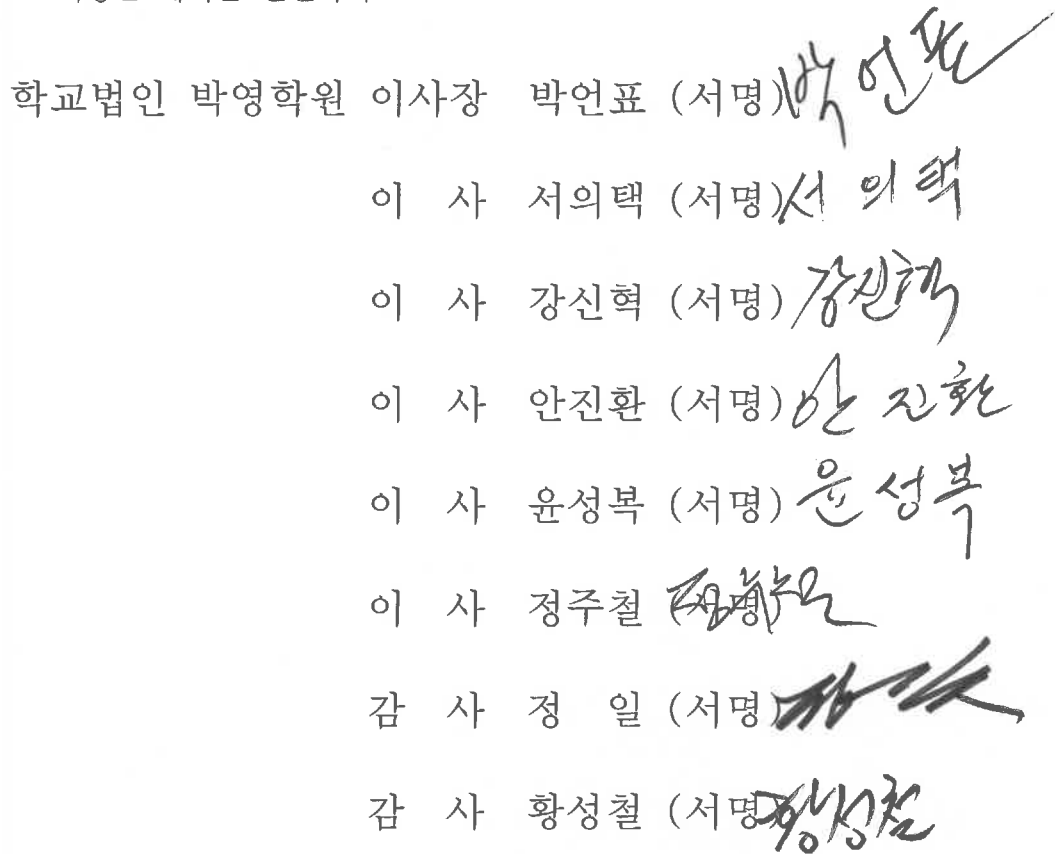 학교법인 박영학원 이사장 박언표 (서명) 박언표
이 사 서의택 (서명) 서의택
이 사 강신혁 (서명) 강신혁
이 사 안진환 (서명) 안진환
이 사 윤성복 (서명) 윤성복
이 사 정주철 (서명)
감 사 정 일 (서명)
감 사 황성철 (서명) 황성철